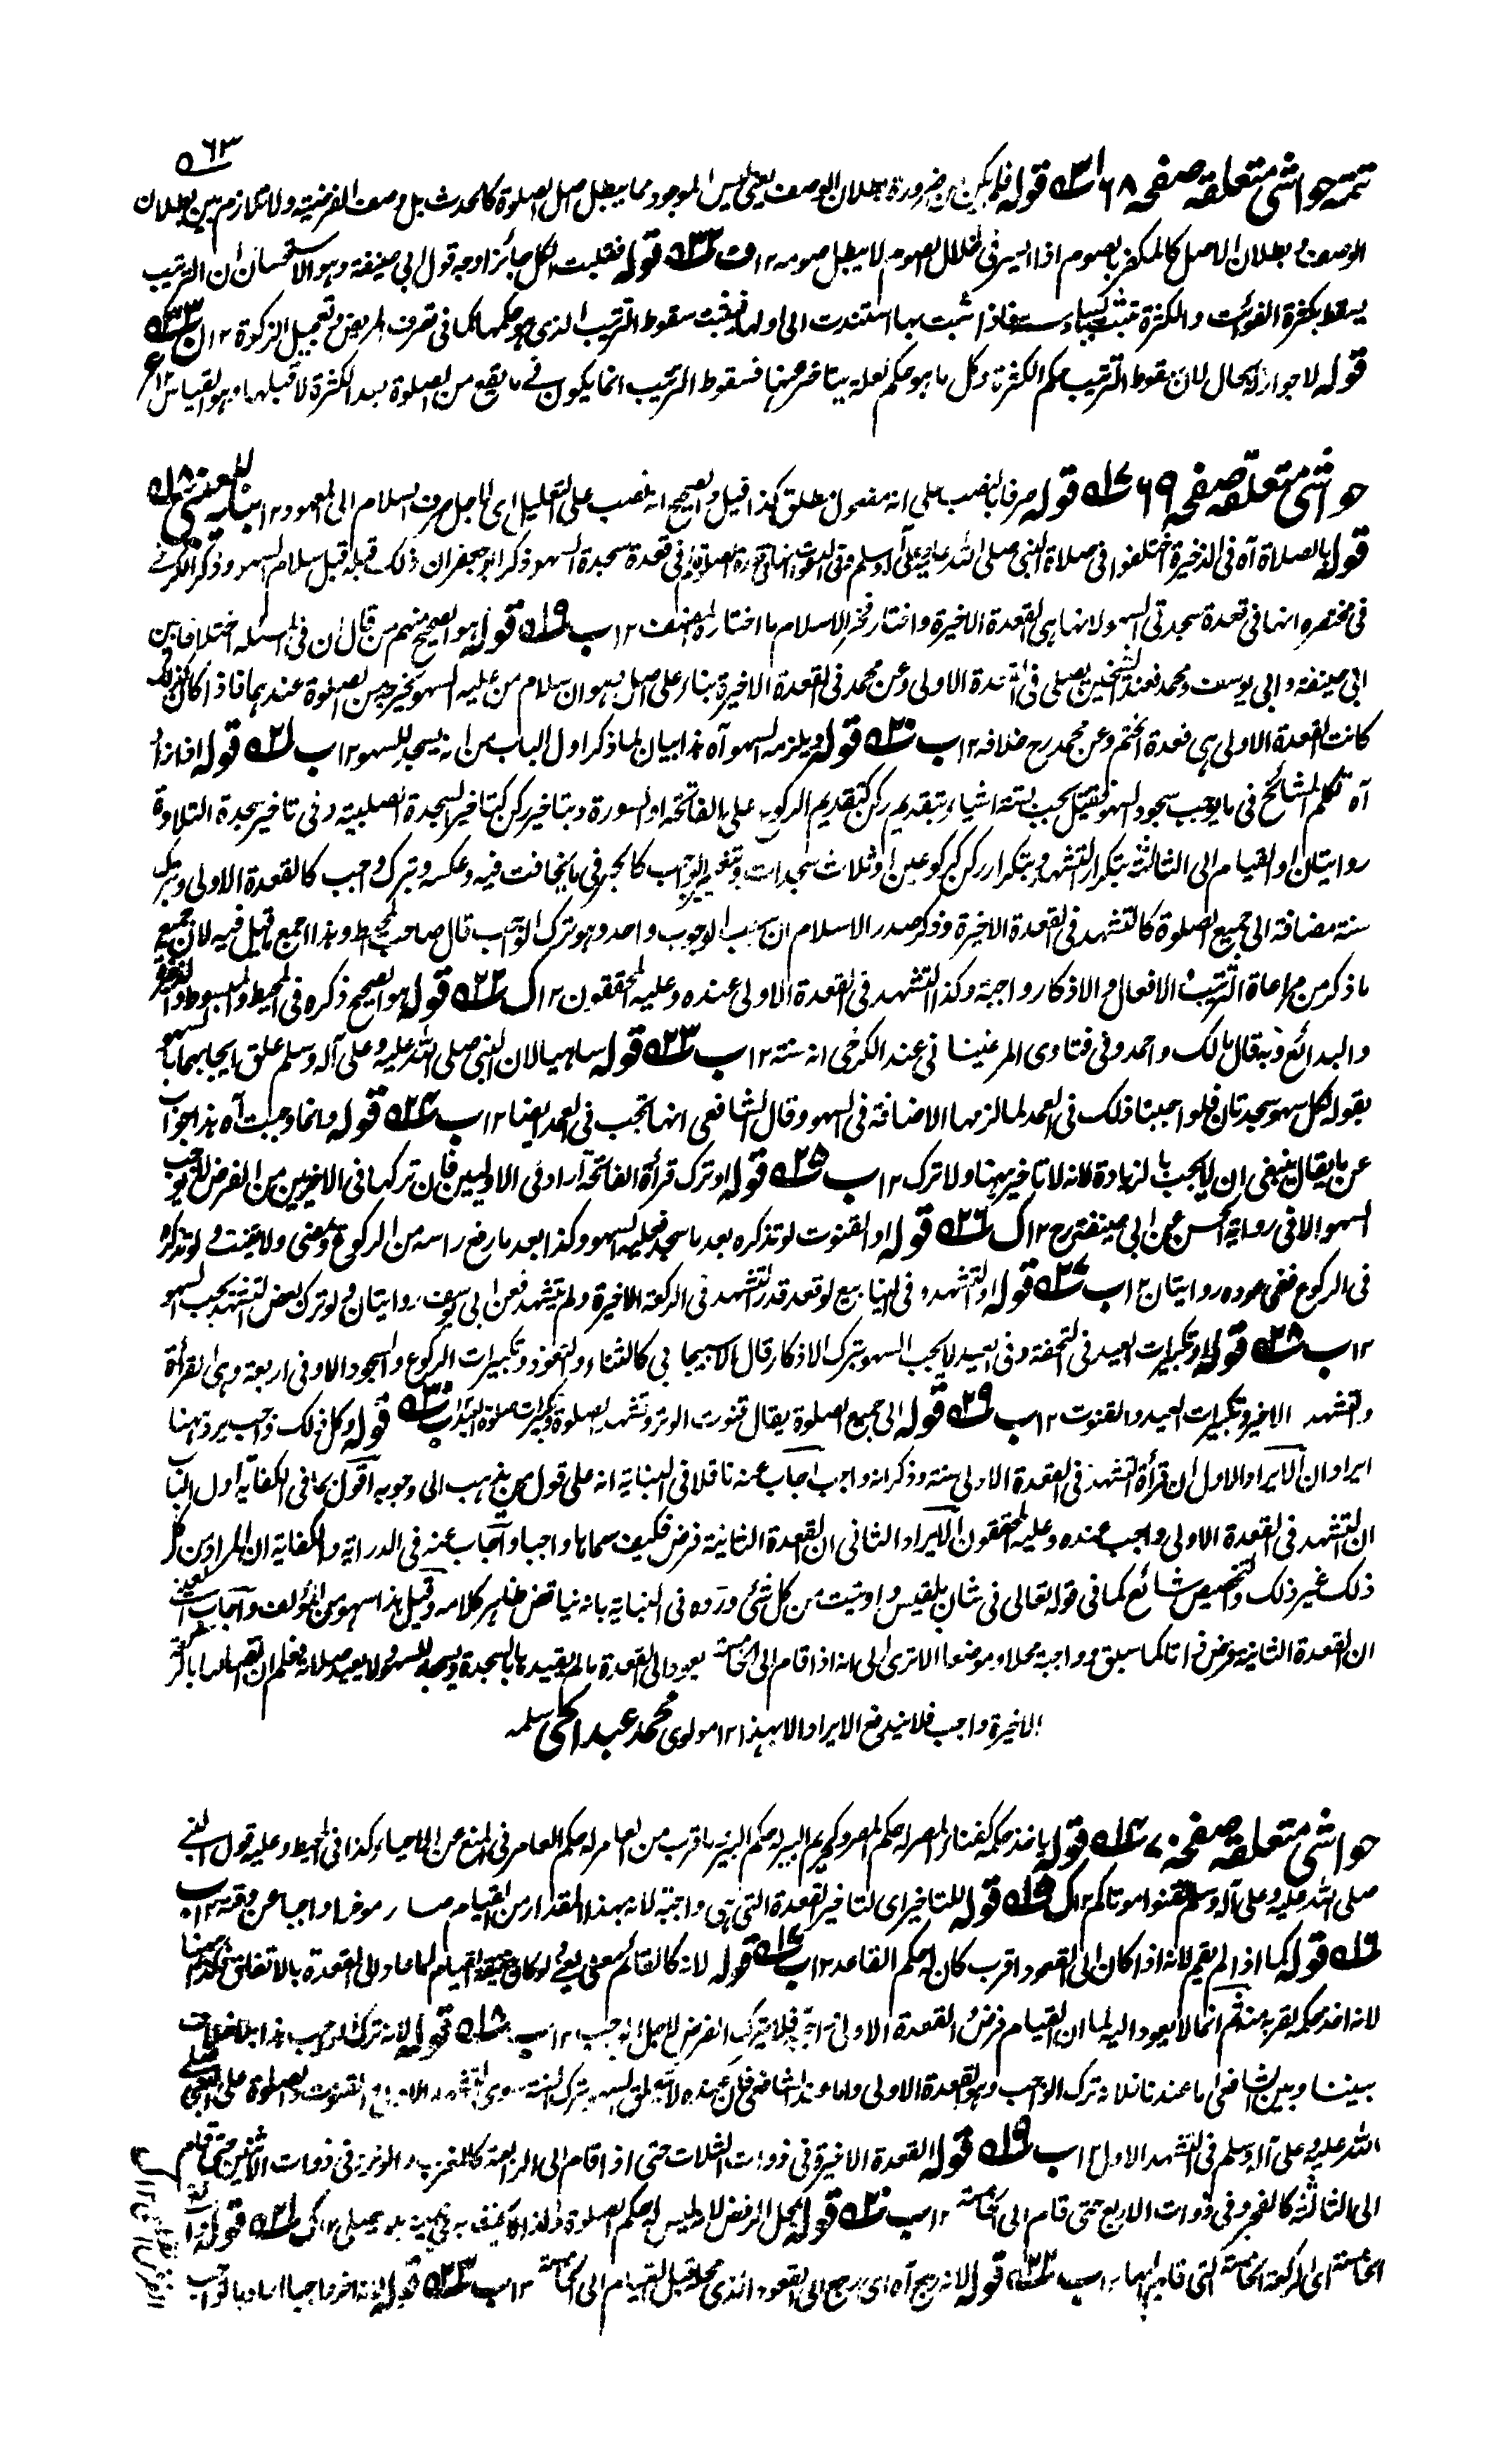 ٥٦٣
تتمه حواشی متعلقه صفحه ٦٨ قوله فلم یکن من ضرورة بطلان الوصف یعنی لیس الموجود مما یبطل اصل الصلوة کالحدث بل وصف الفرضیة ولا تلازم بین بطلان
الوصف و بطلان الاصل کالمکفر بالصوم اذا ایسر فی خلال الصوم لا یبطل صومه ١٢ ف ٣٢ قوله فقلبت الکل جائزا وجه قول ابی حنیفة وهو الاستحسان ان الترتیب
یسقط بکثرة الفوائت والکثرة تثبت فاذا ثبت بها استندت الی اولها فیثبت سقوط الترتیب الذی هو حکمها کما فی تصرف المریض وتعجیل الزکوة ١٢ ن ٣٣
قوله لا جواز لها بحال لان سقوط الترتیب حکم الکثرة وکل ما هو حکم لعلة یتاخر عنها فسقوط الترتیب انما یکون فی ما یقع من الصلوة بعد الکثرة لا قبلها وهو القیاس ١٢ ع
حواشی متعلقه صفحه ٦٩ ١٧ قوله صرفا بالنصب علی انه مفعول مطلق کذا قیل والصحیح انه نصب علی التعلیل ای لاجل صرف السلام الی المعهود ١٢ بنایه للعینی ١٨
قوله بالصلاة آه فی الذخیرة اختلفوا فی صلاة النبی صلی الله علیه وعلی آله وسلم وفی الدعوات انها فی قعدة الصلوة او فی قعدة سجدة السهو ذکر ابو جعفر ان ذلک قبله قبل سلام السهو وذکر الکرخی
فی مختصره انها فی قعدة سجدتی السهو لانها هی القعدة الاخیرة واختار فخر الاسلام ما اختاره المصنف ١٢ ب ١٩ قوله هو الصحیح منهم من قال ان فی المسئلة اختلافا بین
ابی حنیفة و ابی یوسف ومحمد فعند الشیخین یصلی فی القعدة الاولی وعن محمد فی القعدة الاخیرة بناء علی اصل وهو ان سلام من علیه السهو یخرجه من الصلوة عندهما فاذا کان کذلک
کانت القعدة الاولی هی قعدة الختم وعن محمد رح خلافه ١٢ ب ٢٠ قوله ویلزمه السهو آه هذا بیان لما ذکر اول الباب من انه یسجد للسهو ١٢ ب ٢١ قوله اذا زاد
آه تکلم المشائخ فی ما یوجب سجود السهو فقیل یجب بستة اشیاء بتقدیم رکن کتقدیم الرکوع علی الفاتحة او السورة وبتاخیر رکن کتاخیر السجدة الصلبیة وفی تاخیر سجدة التلاوة
روایتان او القیام الی الثالثة بتکرار التشهد وبتکرار رکن کرکوعین او ثلاث سجدات وبتغییر الواجب کالجهر فی ما یخافت فیه وعکسه وبترک واجب کالقعدة الاولی وبترک
سنة مضافة الی جمیع الصلوة کالتشهد فی القعدة الاخیرة وذکر صدر الاسلام ان سبب الوجوب واحد وهو ترک الواجب قال صاحب المحیط وهذا اجمع ما قیل فیه لان جمیع
ما ذکر من مراعاة الترتیب فی الافعال والاذکار واجبة وکذا التشهد فی القعدة الاولی عنده وعلیه المحققون ١٢ ک ٢٢ قوله هو الصحیح ذکره فی المحیط والمبسوط والذخیرة
والبدائع وبه قال مالک واحمد وفی فتاوی المرغینانی عند الکرخی انه سنة ١٢ ب ٢٣ قوله ساهیا لان النبی صلی الله علیه وعلی آله وسلم علق ایجابهما بالسهو
بقوله لکل سهو سجدتان فلو اوجبنا ذلک فی العمد لما لزمها الاضافة فی السهو وقال الشافعی انها تجب فی العمد ایضا ١٢ ب ٢٤ قوله وانما وجبت آه هذا جواب
عن ما یقال ینبغی ان لا یجب بالزیادة لانه لا تاخیر ههنا ولا ترک ١٢ ب ٢٥ قوله او ترک قرأة الفاتحة اراد فی الاولیین فان ترکها فی الاخریین من الفرض لا یوجب
السهو الا فی روایة الحسن عن ابی حنیفة رح ١٢ ک ٢٦ قوله او القنوت لو تذکره بعد ما سجد فعلیه السهو وکذا بعد ما رفع راسه من الرکوع ومضی ولا یقنت ولو تذکره
فی الرکوع ففی عوده روایتان ١٢ ب ٢٧ قوله او التشهد وفی الینابیع لو قعد قدر التشهد فی الرکعة الاخیرة ولم یتشهد فعن ابی یوسف روایتان ولو ترک بعض التشهد یجب السهو
١٢ ب ٢٨ قوله او تکبیرات العید فی التحفة وفی العید لا یجب السهو بترک الاذکار قال الاسبیجابی کالثناء والتعوذ وتکبیرات الرکوع والسجود الا فی اربعة وهی القرأة
والتشهد الاخیر وتکبیرات العید والقنوت ١٢ ب ٢٩ قوله الی جمیع الصلوة یقال قنوت الوتر وتشهد الصلوة وتکبیرات صلوة العید ١٢ ب ٣٠ قوله وکل ذلک واجب یرد ههنا
ایرادان الایراد الاول ان قرأة التشهد فی القعدة الاولی سنة وذکر انه واجب اجاب عنه ناقلا فی البنایة انه علی قول من یذهب الی وجوبه اقول بما فی الکفایة اول الباب
ان التشهد فی القعدة الاولی واجب عنده وعلیه المحققون الایراد الثانی ان القعدة الثانیة فرض فکیف سماها واجبا واجاب عنه فی الدرایة والکفایة ان المراد من کل
ذلک غیر ذلک والتخصیص شائع کما فی قوله تعالی فی شان بلقیس واوتیت من کل شئ ورده فی النهایة بانه یناقض ظاهر کلامه وقیل هذا سهو من المؤلف واجاب
ان القعدة الثانیة فرض ذاتا کما سبق و واجبة محلا وموضعا الا تری الی انه اذا قام الی الخامسة یعود الی القعدة ما لم یقیدها بالسجدة ویسجد للسهو ولا یعید صلاته فعلم ان اتصالها بالرکعة
الاخیرة واجب فلا یندفع الایراد الا بهذا ١٢ مولوی محمد عبد الحی سلمه
حواشی متعلقه صفحه ٧٠ ١٤ قوله یاخذ حکمه کفناء المصر له حکم المصر وکحریم البیر له حکم البیر ما قرب من العامر له حکم العامر فی المنع عن الاحیاء وکذا فی المحیط وعلیه قول النبی
صلی الله علیه وعلی آله وسلم لقنوا موتاکم ١٢ ک ١٥ قوله للتاخیر ای لتاخیر القعدة التی هی واجبة لانه بهذا المقدار من القیام صار موخرا واجبا عن وقته ١٢ ب
١٦ قوله کما اذا لم یقم لانه اذا کان الی القعود اقرب کان له حکم القاعد ١٢ ب ١٧ قوله لانه کالقائم معنی یعنی لو کان حقیقة القیام لما عاد الی القعدة بالاتفاق فکذا ههنا
لانه اخذ حکمه لقربه منه ثم انما لا یعود الیه لما ان القیام فرض والقعدة الاولی واجبة فلا یترک الفرض لاجل الواجب ١٢ ب ١٨ قوله لانه ترک الواجب هذا بلا خلاف
بیننا وبین الشافعی اما عندنا فلانه ترک الواجب وهو القعدة الاولی واما عند الشافعی فلان عنده لا یتعلق السهو بترک السنة سوی التشهد الاول والقنوت والصلوة علی النبی صلی
الله علیه وعلی آله وسلم فی التشهد الاول ١٢ ب ١٩ قوله القعدة الاخیرة فی ذوات الثلاث حتی اذا قام الی الرابعة کالمغرب والوتر وفی ذوات الاثنین حتی قام
الی الثالثة کالفجر وفی ذوات الاربع حتی قام الی الخامسة ١٢ ب ٢٠ قوله بمحل الرفض لانه لیس له حکم الصلوة ولذا لا یحنث به فی یمینه لا یصلی ١٢ ک ٢١ قوله
الخامسة ای الرکعة الخامسة التی قام الیها ١٢ ب ٢٢ قوله لانه رجع آه ای یرجع الی القعود الذی محله قبل القیام الی الخامسة ١٢ ب ٢٣ قوله لانه اخر واجبا